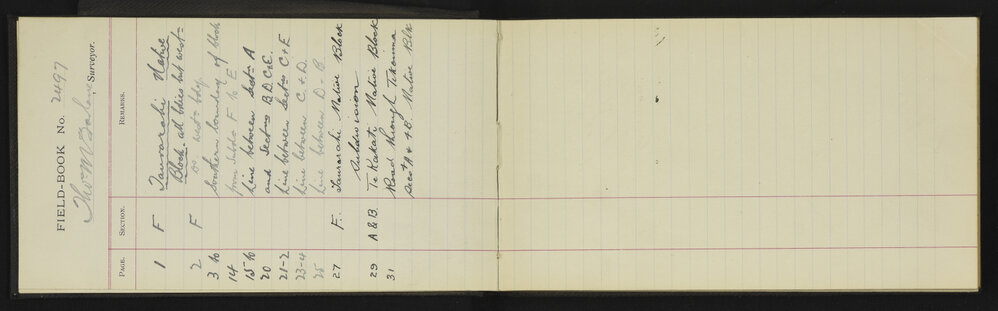 FIELD-BOOK No. 2497
Thos M Surveyor.
PAGE. SECTION. REMARKS.
1 F Taurarahi Native
Block. all bdies but west-
2 F Do west- bdy
3 to Southern boundary of block
14 from Subdn F to E
15 to Line between Sectns A
20 and Sectns B.D.C & E.
21-2 Line between Sectns C & E
23-4 Line between C. & D.
25 Line between D. & B.
27 F. Taurarahi Native Block
Subdivision
29 A & B. Te Kakati Native Block
31 Road through
Secs A & B. Native Blk